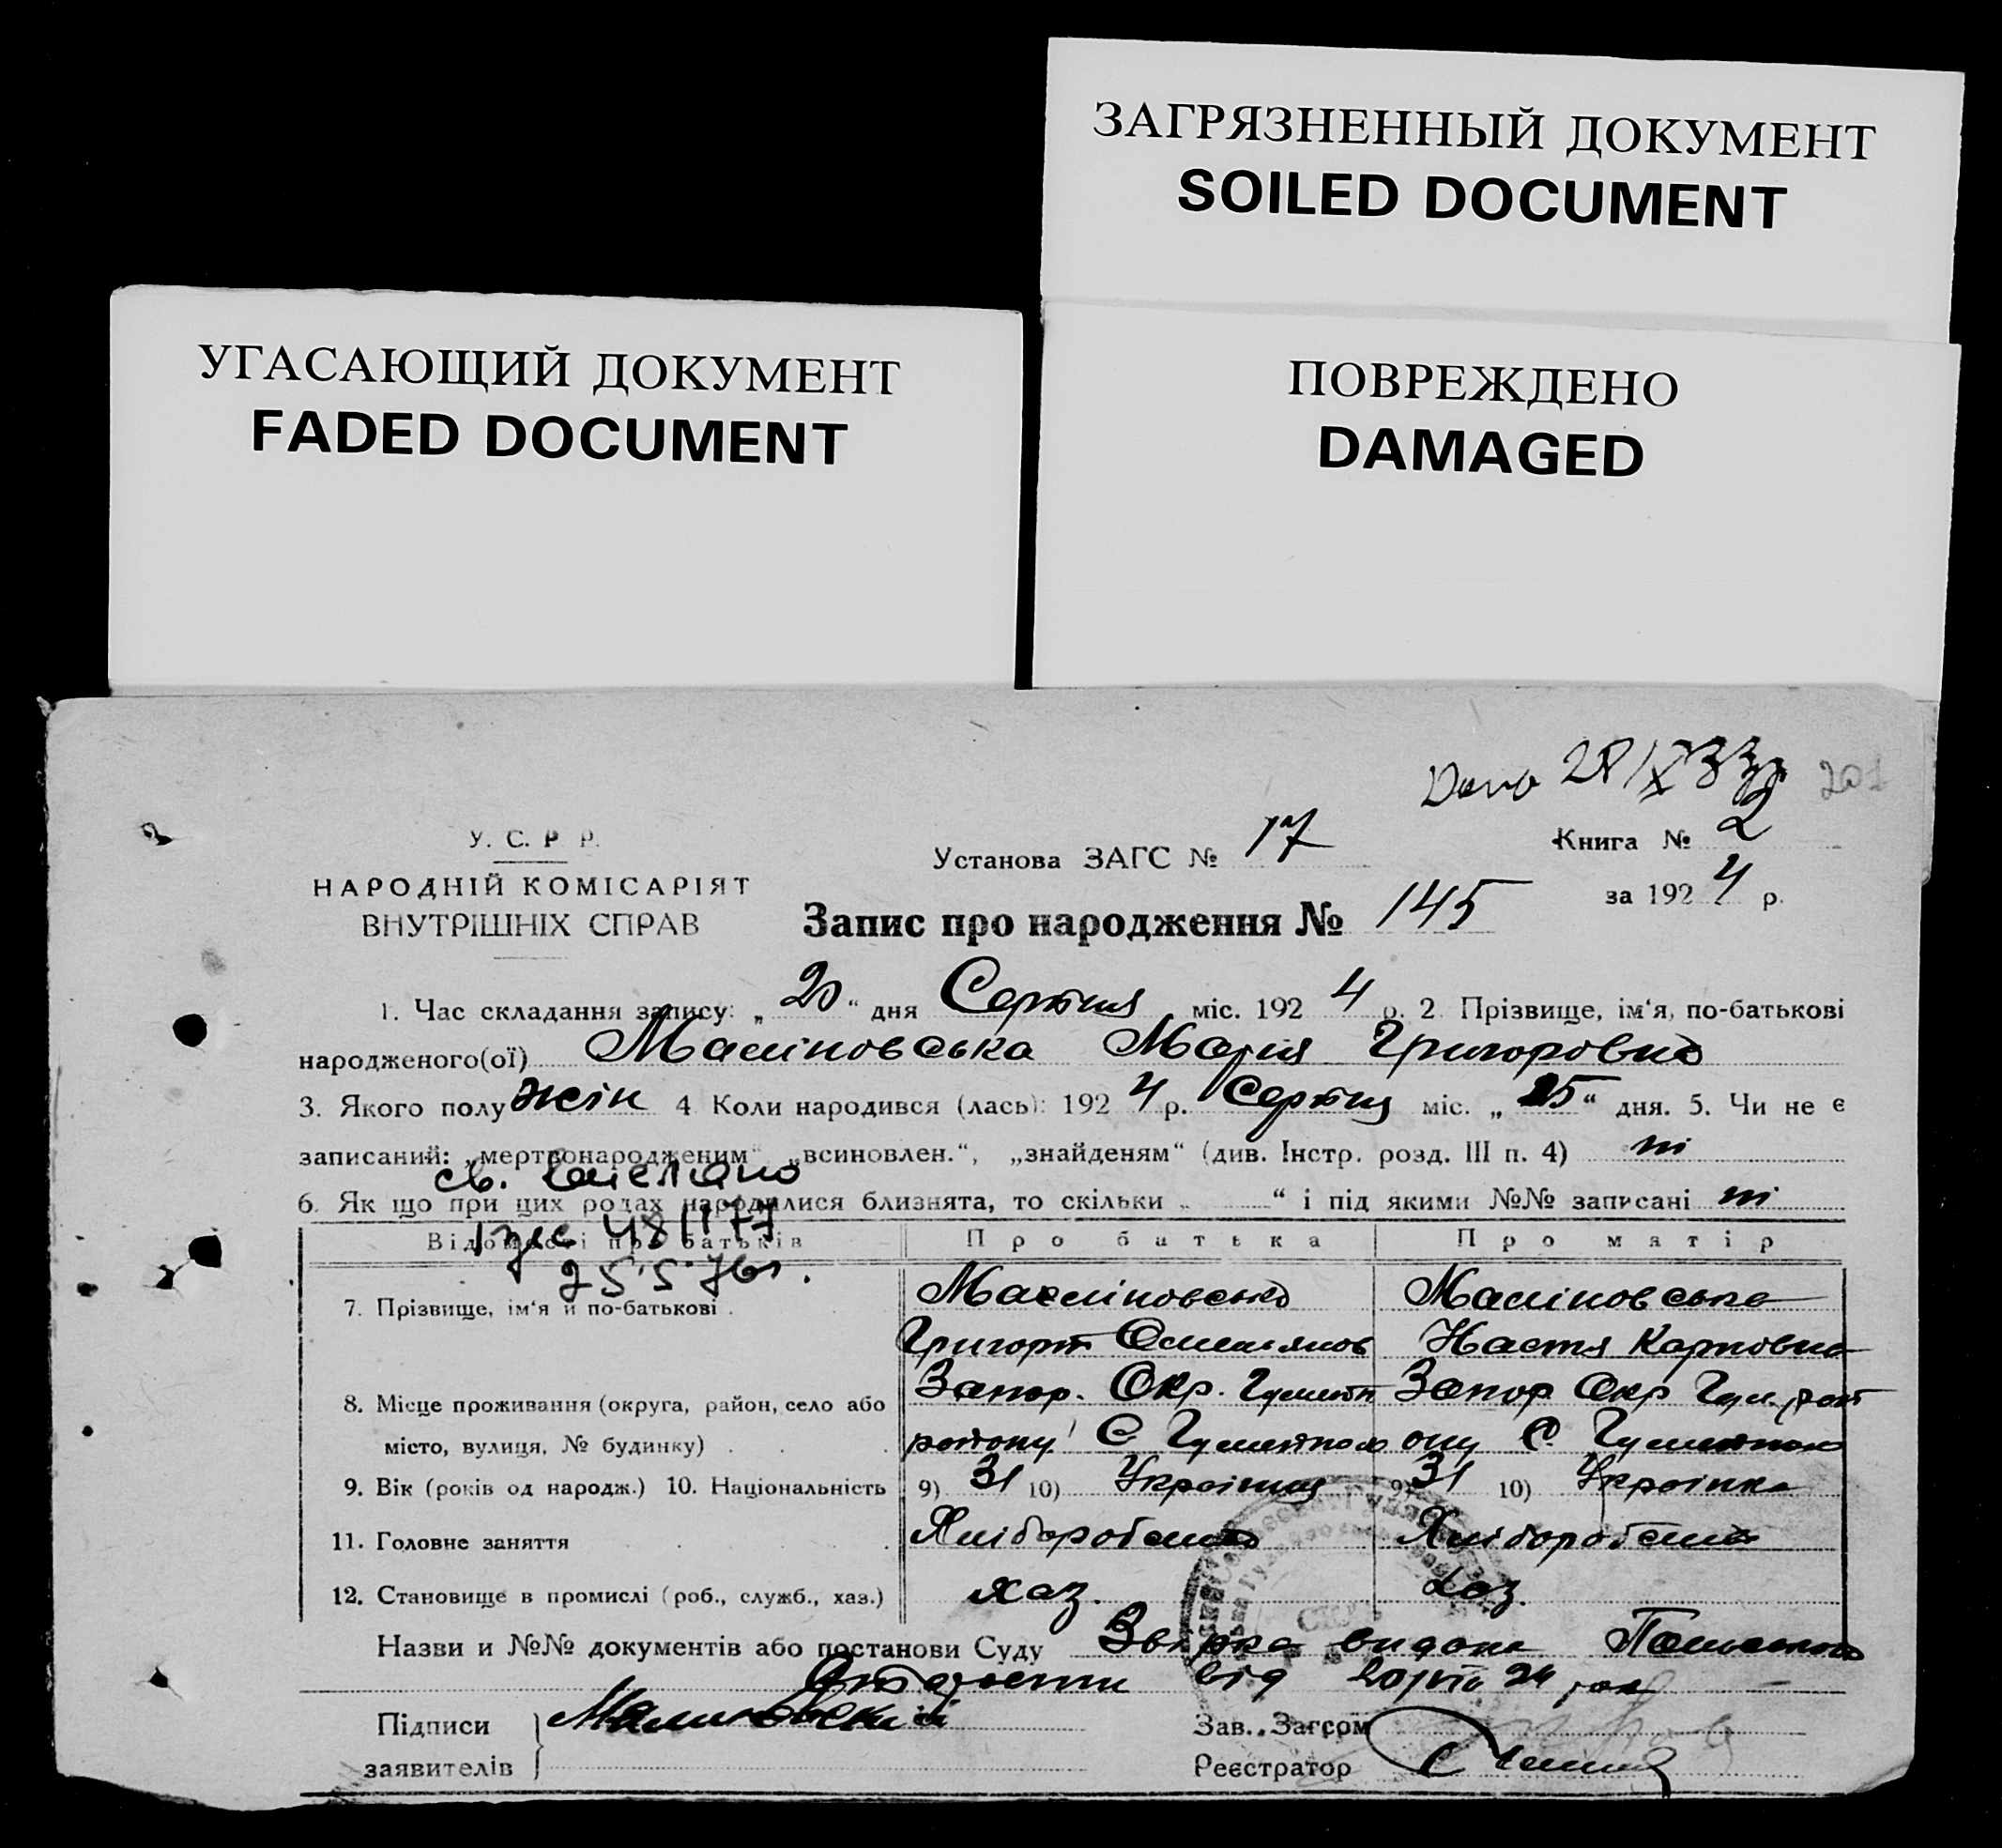 ЗАГРЯЗНЕННЫЙ ДОКУМЕНТ
SOILED DOCUMENT
УГАСАЮЩИЙ ДОКУМЕНТ
FADED DOCUMENT
ПОВРЕЖДЕНО
DAMAGED
28/X 33 201
У. С. Р Р.
НАРОДНІЙ КОМІСАРІЯТ
ВНУТРІШНІХ СПРАВ
Установа ЗАГС № 17
Книга № 2
за 1924 р.
Запис про народження № 145
1. Час складання запису: „20“ дня Серпня міс. 1924 р. 2. Прізвище, ім‘я, по-батькові
народженого(ої) Маліновська Марія Григоровна
3. Якого полу жін 4 Коли народився (лась): 1924 р. Серпня міс. „15“ дня. 5. Чи не є
записаний: „мертвонародженим“ „всиновлен.“, „знайденям“ (див. Інстр. розд. III п. 4) ні
6. Як що при цих родах народилися близнята, то скільки „ “ і під якими №№ записані ні
48/177
25.5.76г.
Відомості про батьків Про батька Про матір
7. Прізвище, ім‘я й по-батькові Маліновський Маліновська
Григорій Омельянов Настя Карповна
8. Місце проживання (округа, район, село або Запор. Окр. Запор Окр
місто, вулиця, № будинку) району С. ону С.
9. Вік (років од народж.) 10. Національність 9) 31 10) Українец 9) 31 10) Українка
11. Головне заняття Хліборобство Хліборобство
12. Становище в промислі (роб., служб., хаз.) хаз. хаз.
Назви и №№ документів або постанови Суду видана
від 24
Підписи Малиновский Зав. Загсом
заявителів Реєстратор